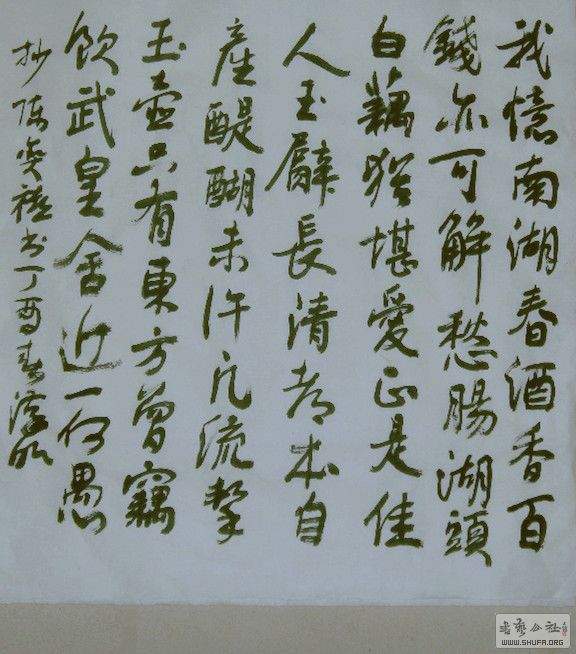 我憶南湖春酒香百
錢亦可解愁腸湖頭
白藕猶堪愛正是佳
人玉臂長清都本自
產醍醐未許凡流挈
玉壺只有東方曾竊
飲武皇舍近一何愚
抄陈奕禧书丁酉春
書藝公社
WWW.SHUFA.ORG